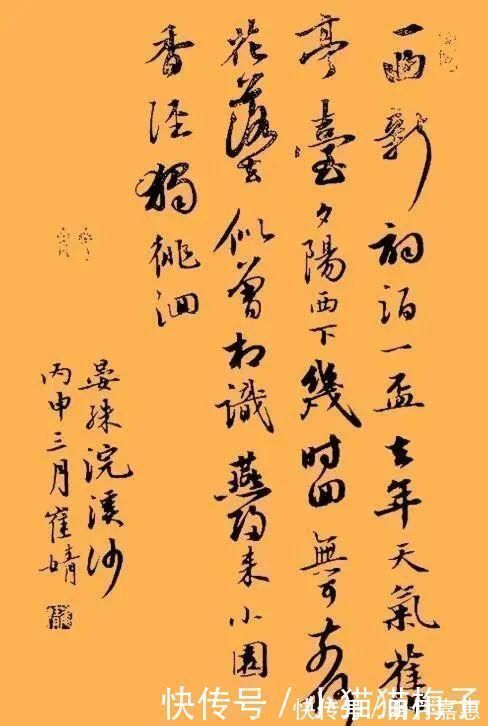 一曲新詞酒一盃去年天氣舊
亭臺夕陽西下幾时回無可奈何
花落去似曾相識燕归来小園
香径獨徘徊
晏殊浣溪沙
丙申三月崔婧
快传号 / 小猫猫梅子
快传号
嘉惠